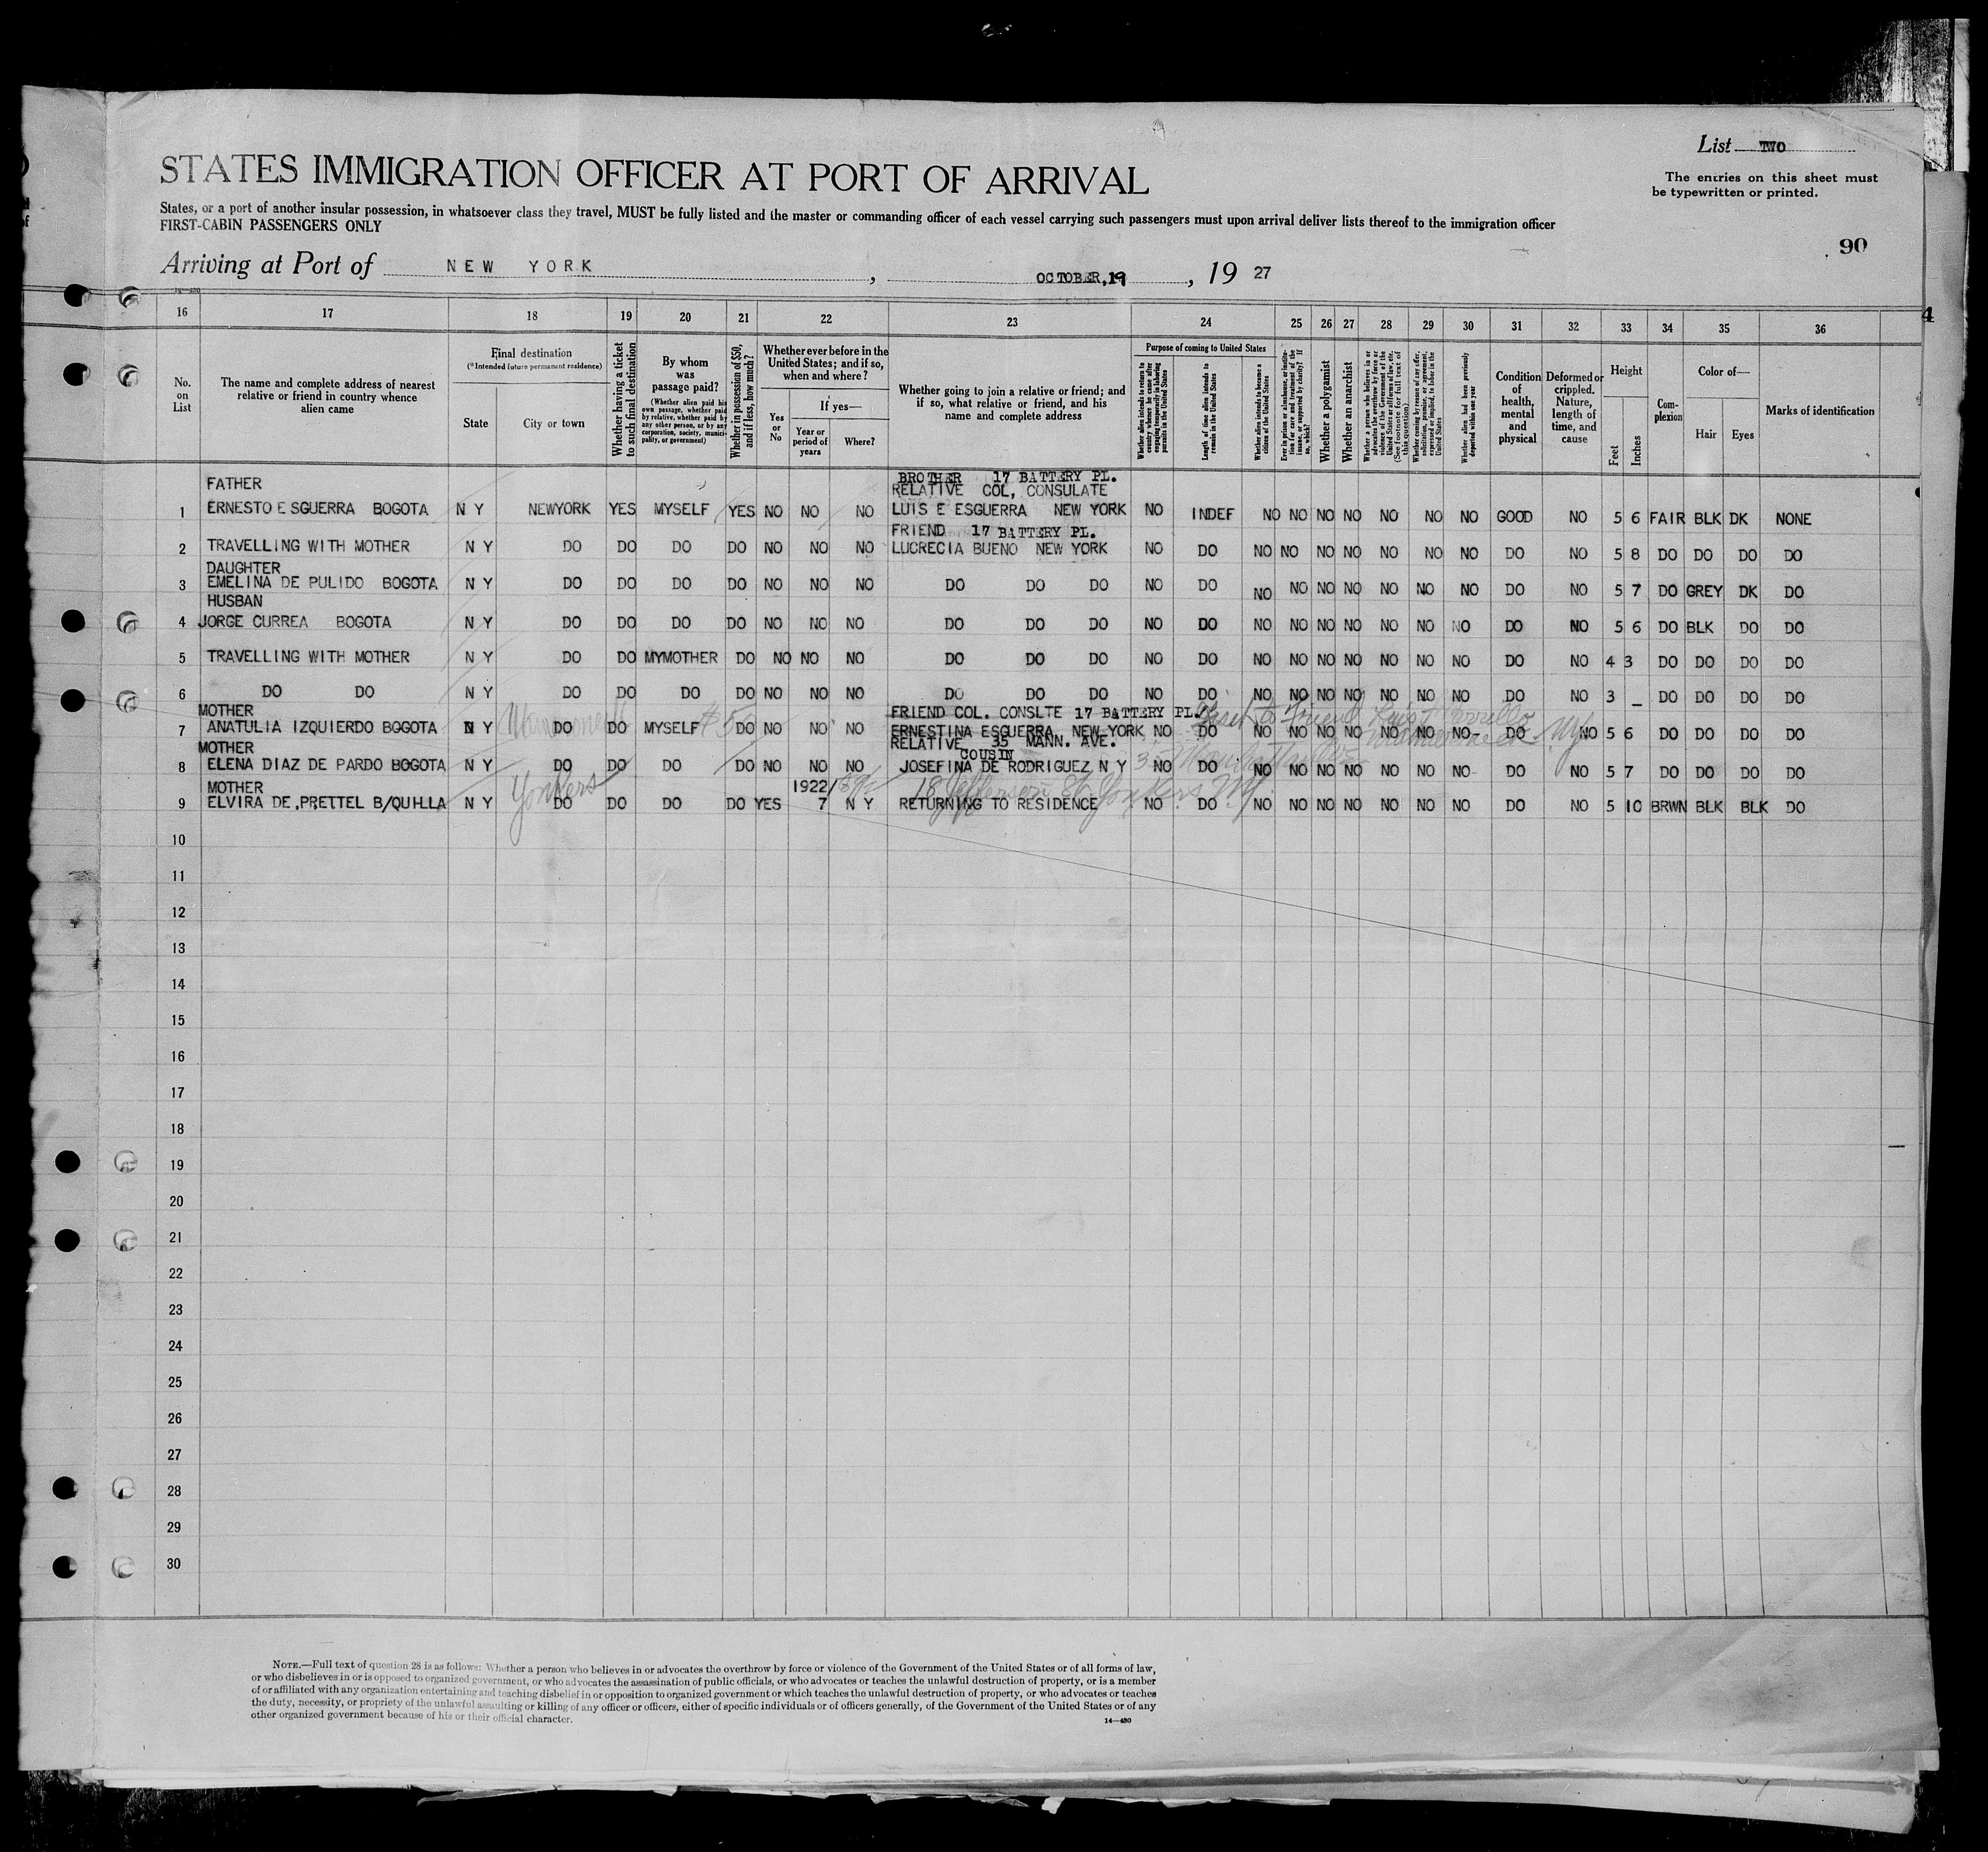 List TWO
The entries on this sheet must
be typewritten or printed.
STATES IMMIGRATION OFFICER AT PORT OF ARRIVAL
States, or a port of another insular possession, in whatsoever class they travel, MUST be fully listed and the master or commanding officer of each vessel carrying such passengers must upon arrival deliver lists thereof to the immigration officer
FIRST-CABIN PASSENGERS ONLY
90
Arriving at Port of NEW YORK, OCTOBER, 19, 19 27
16 17 18 19 20 21 22 23 24 25 26 27 28 29 30 31 32 33 34 35 36
No. on List
The name and complete address of nearest relative or friend in country whence alien came
Final destination
(*Intended future permanent residence)
State
City or town
Whether having a ticket to such final destination
By whom was passage paid?
(Whether alien paid his own passage, whether paid by relative, whether paid by any other person, or by any corporation, society, municipality, or government)
Whether in possession of $50, and if less, how much?
Whether ever before in the United States; and if so, when and where?
Yes or No
If yes—
Year or period of years
Where?
Whether going to join a relative or friend; and if so, what relative or friend, and his name and complete address
Purpose of coming to United States
Whether alien intends to return to country whence he came after engaging temporarily in laboring pursuits in the United States
Length of time alien intends to remain in the United States
Whether alien intends to become a citizen of the United States
Ever in prison or almshouse, or institution for care and treatment of the insane, or supported by charity? If so, which?
Whether a polygamist
Whether an anarchist
Whether a person who believes in or advocates the overthrow by force or violence of the Government of the United States or all forms of law, etc. (See footnote for full text of this question)
Whether coming by reason of any offer, solicitation, promise, or agreement, expressed or implied, to labor in the United States
Whether alien had been previously deported within one year
Condition of health, mental and physical
Deformed or crippled. Nature, length of time, and cause
Height
Feet
Inches
Complexion
Color of—
Hair
Eyes
Marks of identification
FATHER BROTHER 17 BATTERY PL.
RELATIVE COL, CONSULATE
1 ERNESTO ESGUERRA BOGOTA N Y NEWYORK YES MYSELF YES NO NO NO LUIS E ESGUERRA NEW YORK NO INDEF NO NO NO NO NO NO NO GOOD NO 5 6 FAIR BLK DK NONE
FRIEND 17 BATTERY PL.
2 TRAVELLING WITH MOTHER N Y DO DO DO DO NO NO NO LUCRECIA BUENO NEW YORK NO DO NO NO NO NO NO NO NO DO NO 5 8 DO DO DO DO
DAUGHTER
3 EMELINA DE PULIDO BOGOTA N Y DO DO DO DO NO NO NO DO DO DO NO DO NO NO NO NO NO NO NO DO NO 5 7 DO GREY DK DO
HUSBAN
4 JORGE CURREA BOGOTA N Y DO DO DO DO NO NO NO DO DO DO NO DO NO NO NO NO NO NO NO DO NO 5 6 DO BLK DO DO
5 TRAVELLING WITH MOTHER N Y DO DO MYMOTHER DO NO NO NO DO DO DO NO DO NO NO NO NO NO NO NO DO NO 4 3 DO DO DO DO
6 DO DO N Y DO DO DO DO NO NO NO DO DO DO NO DO NO NO NO NO NO NO NO DO NO 3 _ DO DO DO DO
MOTHER FRIEND COL. CONSLTE 17 BATTERY PL. to Friend Luis
7 ANATULIA IZQUIERDO BOGOTA N Y DO DO MYSELF $50 DO NO NO NO ERNESTINA ESGUERRA NEW YORK NO DO NO NO NO NO NO NO NO DO NY NO 5 6 DO DO DO DO
MOTHER RELATIVE 35 MANN. AVE.
COUSIN
8 ELENA DIAZ DE PARDO BOGOTA N Y DO DO DO DO NO NO NO JOSEFINA DE RODRIGUEZ N Y NO DO NO NO NO NO NO NO NO DO NO 5 7 DO DO DO DO
MOTHER Yonkers 1922/ 18 Jefferson St Yonkers NY
9 ELVIRA DE PRETTEL B/QUILLA N Y DO DO DO DO YES 7 N Y RETURNING TO RESIDENCE NO DO NO NO NO NO NO NO NO DO NO 5 10 BRWN BLK BLK DO
10
11
12
13
14
15
16
17
18
19
20
21
22
23
24
25
26
27
28
29
30
NOTE.—Full text of question 28 is as follows: Whether a person who believes in or advocates the overthrow by force or violence of the Government of the United States or of all forms of law,
or who disbelieves in or is opposed to organized government, or who advocates the assassination of public officials, or who advocates or teaches the unlawful destruction of property, or is a member
of or affiliated with any organization entertaining and teaching disbelief in or opposition to organized government or which teaches the unlawful destruction of property, or who advocates or teaches
the duty, necessity, or propriety of the unlawful assaulting or killing of any officer or officers, either of specific individuals or of officers generally, of the Government of the United States or of any
other organized government because of his or their official character.
14—430